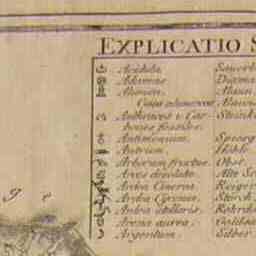 EXPLICATIO S
Acidula. Sauerb
Adamas. Diama
Alumen. Alaun.
Anthraces s. Car- Steink
bones fossiles.
Antimonium. Speisg
Antrum. Höhle.
Arborum fructus. Obst.
Arces desolatæ. Alte S
Ardea Cinerea. Reiger
Ardea Ciconia. Storch
Ardea stellaris. Rohrdo
Arena aurea. Goldsa
Argentum. Silber.
g e